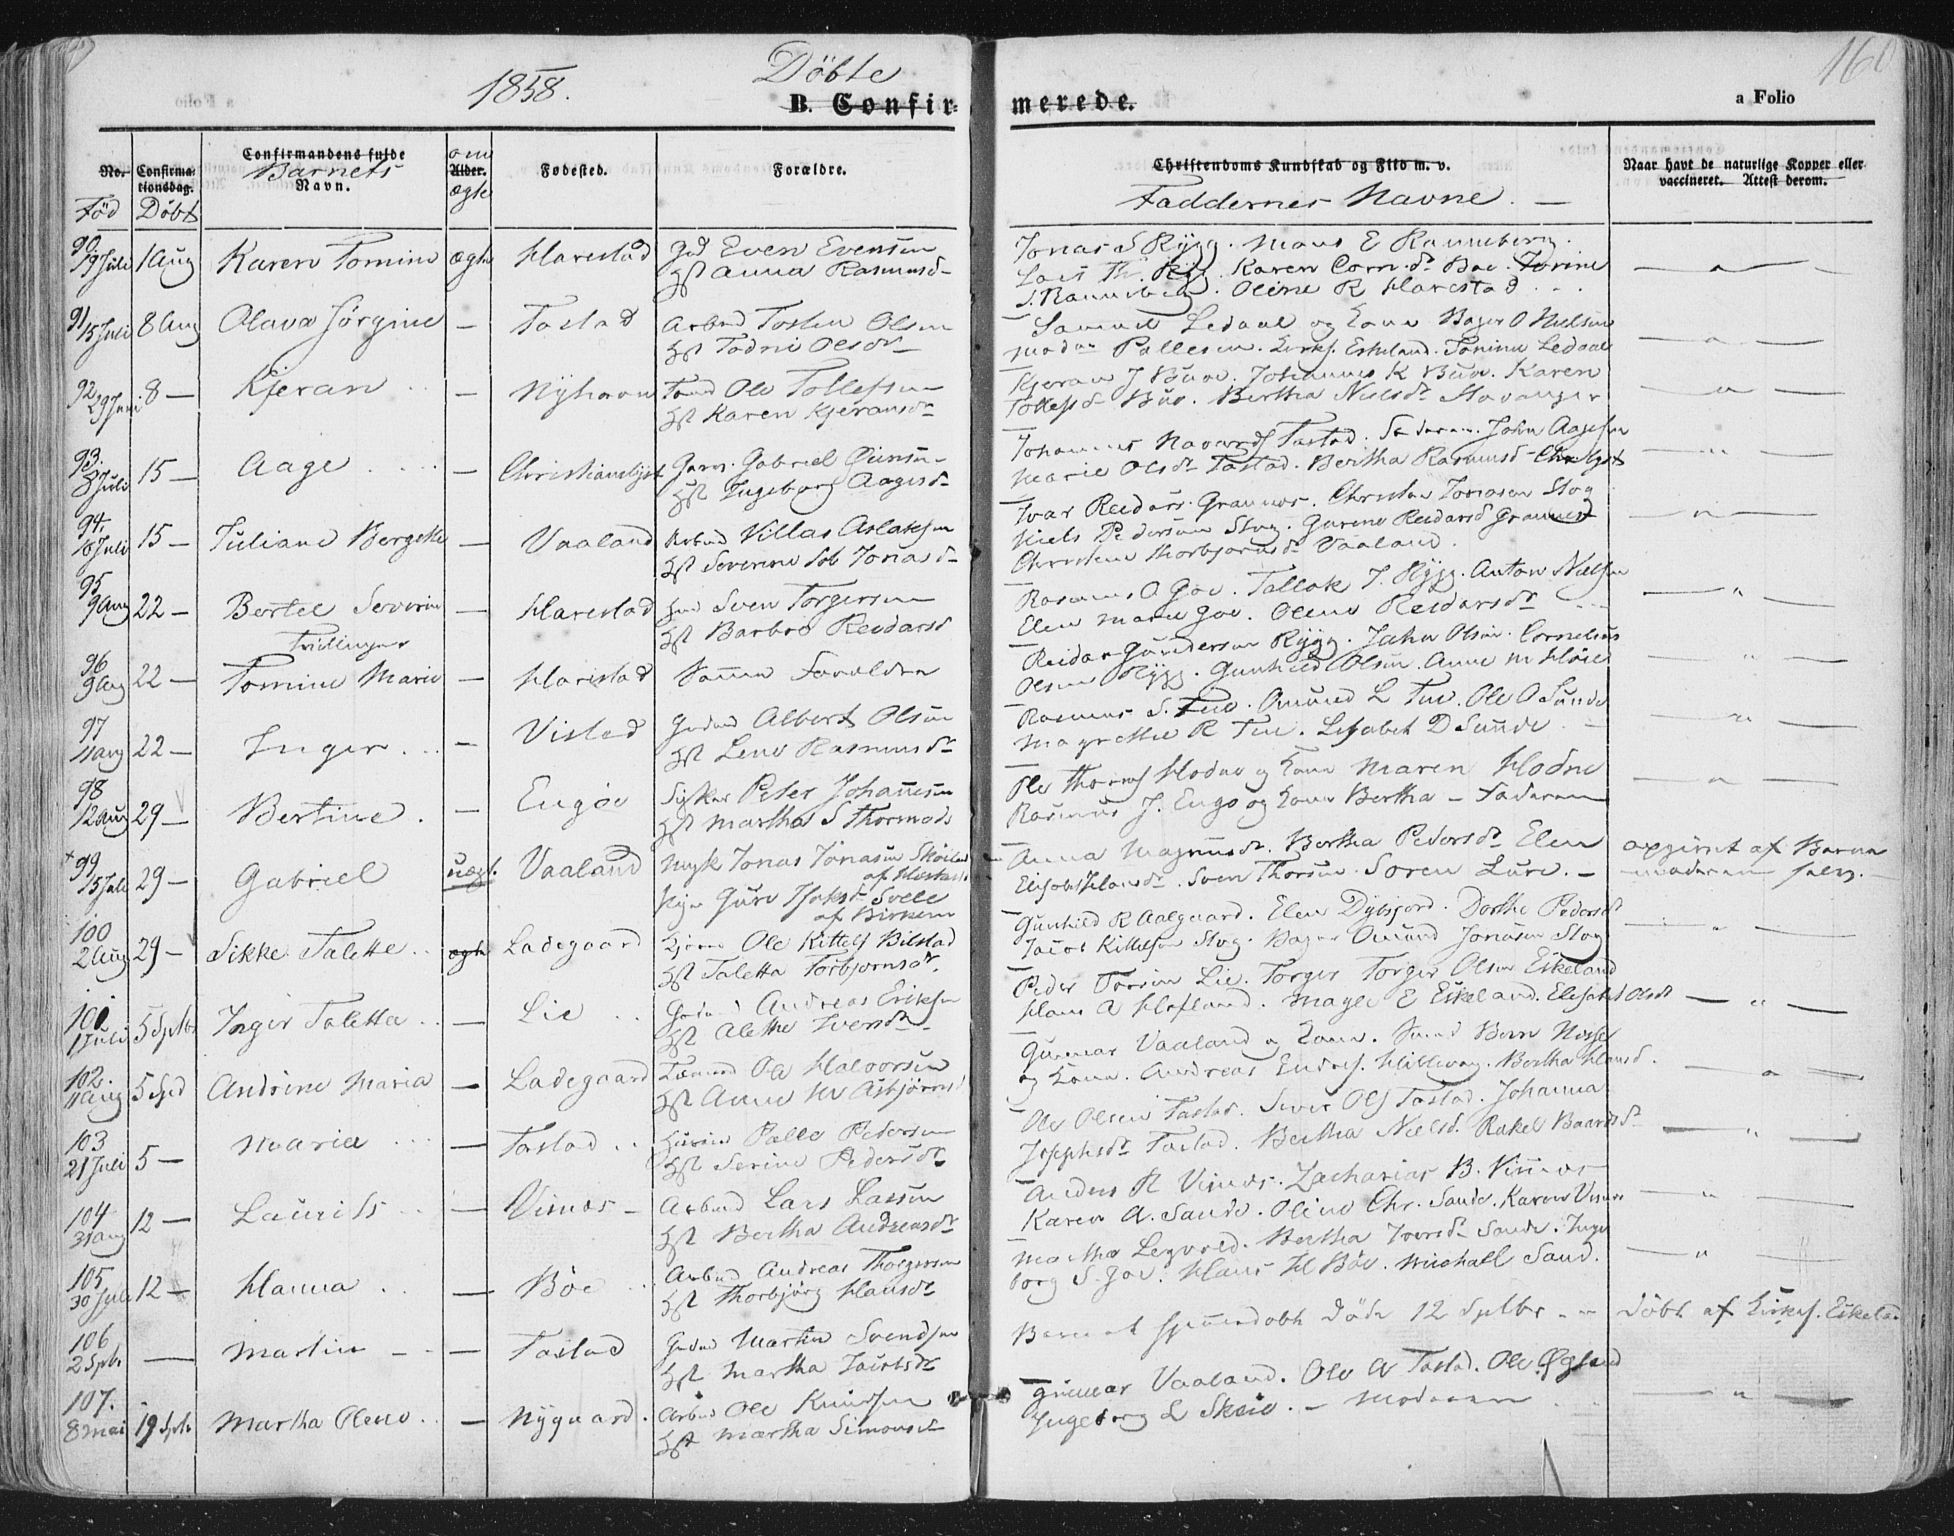 1858.
Döbte
B. Confirmerede.
160
a Folio
No. Confirmationsdag. Confirmandens fulde Navn. Barnets Alder. ægte Födested. Forældre. Christendoms Kundskab og Flid m. v. Naar havt de naturlige Kopper eller vaccineret. Attest derom.
Föd Döbt Faddernes Navne. —
90 19 Juli 1 Aug Karen Tomine ægte Harestad Even Evensen
Hst Anna Rasmusd
Jonas S Rygg. Mons E Ranneberg.
Lars Th. Rygg. Karen Corn. dr Boe. Torine
S. Ranneberg. Oline R Harestad
91 15 Juli 8 Aug Olava Jörgine — Tastad Arbmd Tosten Olsen
Hst Todni Olsdr
Samuel Ledaal og Kone Bager O Nielsen
Pallesen. Kirks. Eskeland. Tomine Ledaal
92 29 Juni 8 — Kjeran — Nyhavn Ole Tollefsen
Hst Karen Kjeransdr
Kjeran J Bue. Johannes K Bue. Karen
Tollefsd Bue. Bertha Nielsdr Stavanger
93. 8 Juli 15 — Aage — Christianslyst Garv. Gabriel
Hst Ingeborg Aagesd
Johannes Tastad. Faderen. John Aagesen
Marie Olsdr Tastad. Bertha Rasmusd Chrlyst
94. 15 — Juliane Bergette — Vaaland Arbmd Villas Aslaksen
Hst Severine Jonasd
Ivar Reidars. Grannes. Christen Jonasen Stog
Niels Pedersen Stog. Gurine Reidarsd Grannes
Thorbjornsdr Vaaland.
95 9 Aug 22 — Bertel Severin — Harestad Sven Torgersen
Hst Barbro Reidarsd
Tvillinger
Rasmus O Goe. Tallak J. Rygg. Anton Nielsen
Elen Marie Goe. Olene Reidarsdr
96 9 Aug 22 — Tomine Marie — Harestad Samme Forældre
Reidar Gundersen Rygg. John Olsen. Cornelius
Olsen Rygg. Gunhild Olsen. Anne M Höie
97 11 aug 22 — Inger — Visted Albert Olsen
Hst Lene Rasmusdr
Rasmus S. Tue. Omund L Tue. Ole O Sunde
Magrethe R Tue. Lisabet D Sunde
98 12 Aug 29 — Bertine. — Engöe Peter Johannesen
Hst Martha S Thormods
Ole Hodne og Kone Maren Hodne
Rasmus J. Engö og Kone Bertha — Faderen
99 15 Juli 29 — Gabriel uægt. Vaaland Ungk Jonas Jonasen
Guri Svele
af Birkrem
Anna Magnusdr. Bertha Pedersdr Elen
Elisabet Hansdr. Sven Thorsen. Soren Lure. — opgivet af Barne
moderen selv.
100 2 Aug 29 — Sikke Talette ægte Ladegaard Ole Kittels Bilstad
Hst Taletta Torbjornsdr.
Gunhild R Aalgaard. Elen Dybsjord. Dorthe Pedersdr
Jacob Kittelsen Stog. Bager Omund Jonasen Stog
101 Juli 5 Sptbr Inger Taletta — Lie Andreas Eriksen
Hst Alethe Iversdr
Peder Lie. Torger Torger Olsen Eskeland
Hans A Hafland. Magle E Eskeland. Elisabet Olsdr
102. 11 Aug 5 Andrine Maria — Ladegaard Ole Halvorsen
Hst Anne M Asbjörnsd
Gunnar Vaaland og Kone.
og Kone. Andreas Endres. Hillevag. Bertha Hansd.
103 21 Juli 5 — Maria — Tastad Palle Pedersen
Hst Serine Pedersdr
Ole Olsen Tastad. Siver Ols Tastad. Johanna
Josephsdr Tastad. Bertha Nielsd. Rakel Baardsdr
104 31 aug 12 — Laurits — Visnes — Arbmd Lars Larsen
Hst Bertha Andreasdr
Anders R Visnes. Zacharias B. Visnes
Karen A. Sande. Oline Chr. Sande. Karen Visnes
105 30 Juli 12 — Hanna — Böe Arbmd Andreas Thorgersen
Hst Thorbjörg Hansdr
Martha Legvold. Bertha Iversdr Sande. Inge
borg S. Goe. Hans H Böe. Michall Sand.
106 2 Sptb — Martin — Tastad Martin Svendsen
Hst Martha
Barnet hjemmedobt Döde 12 Sptbr Döbt af Kirkes. Eskeland
107. 8 Mai 19 Sptb Martha Olene — Nygaard. Arbmd Ole Knudsen
Hst Martha Simonsdr
Gunnar Vaaland. Ole A Tastad. Ole Ogland
Ingeborg L Skeie. — Moderen